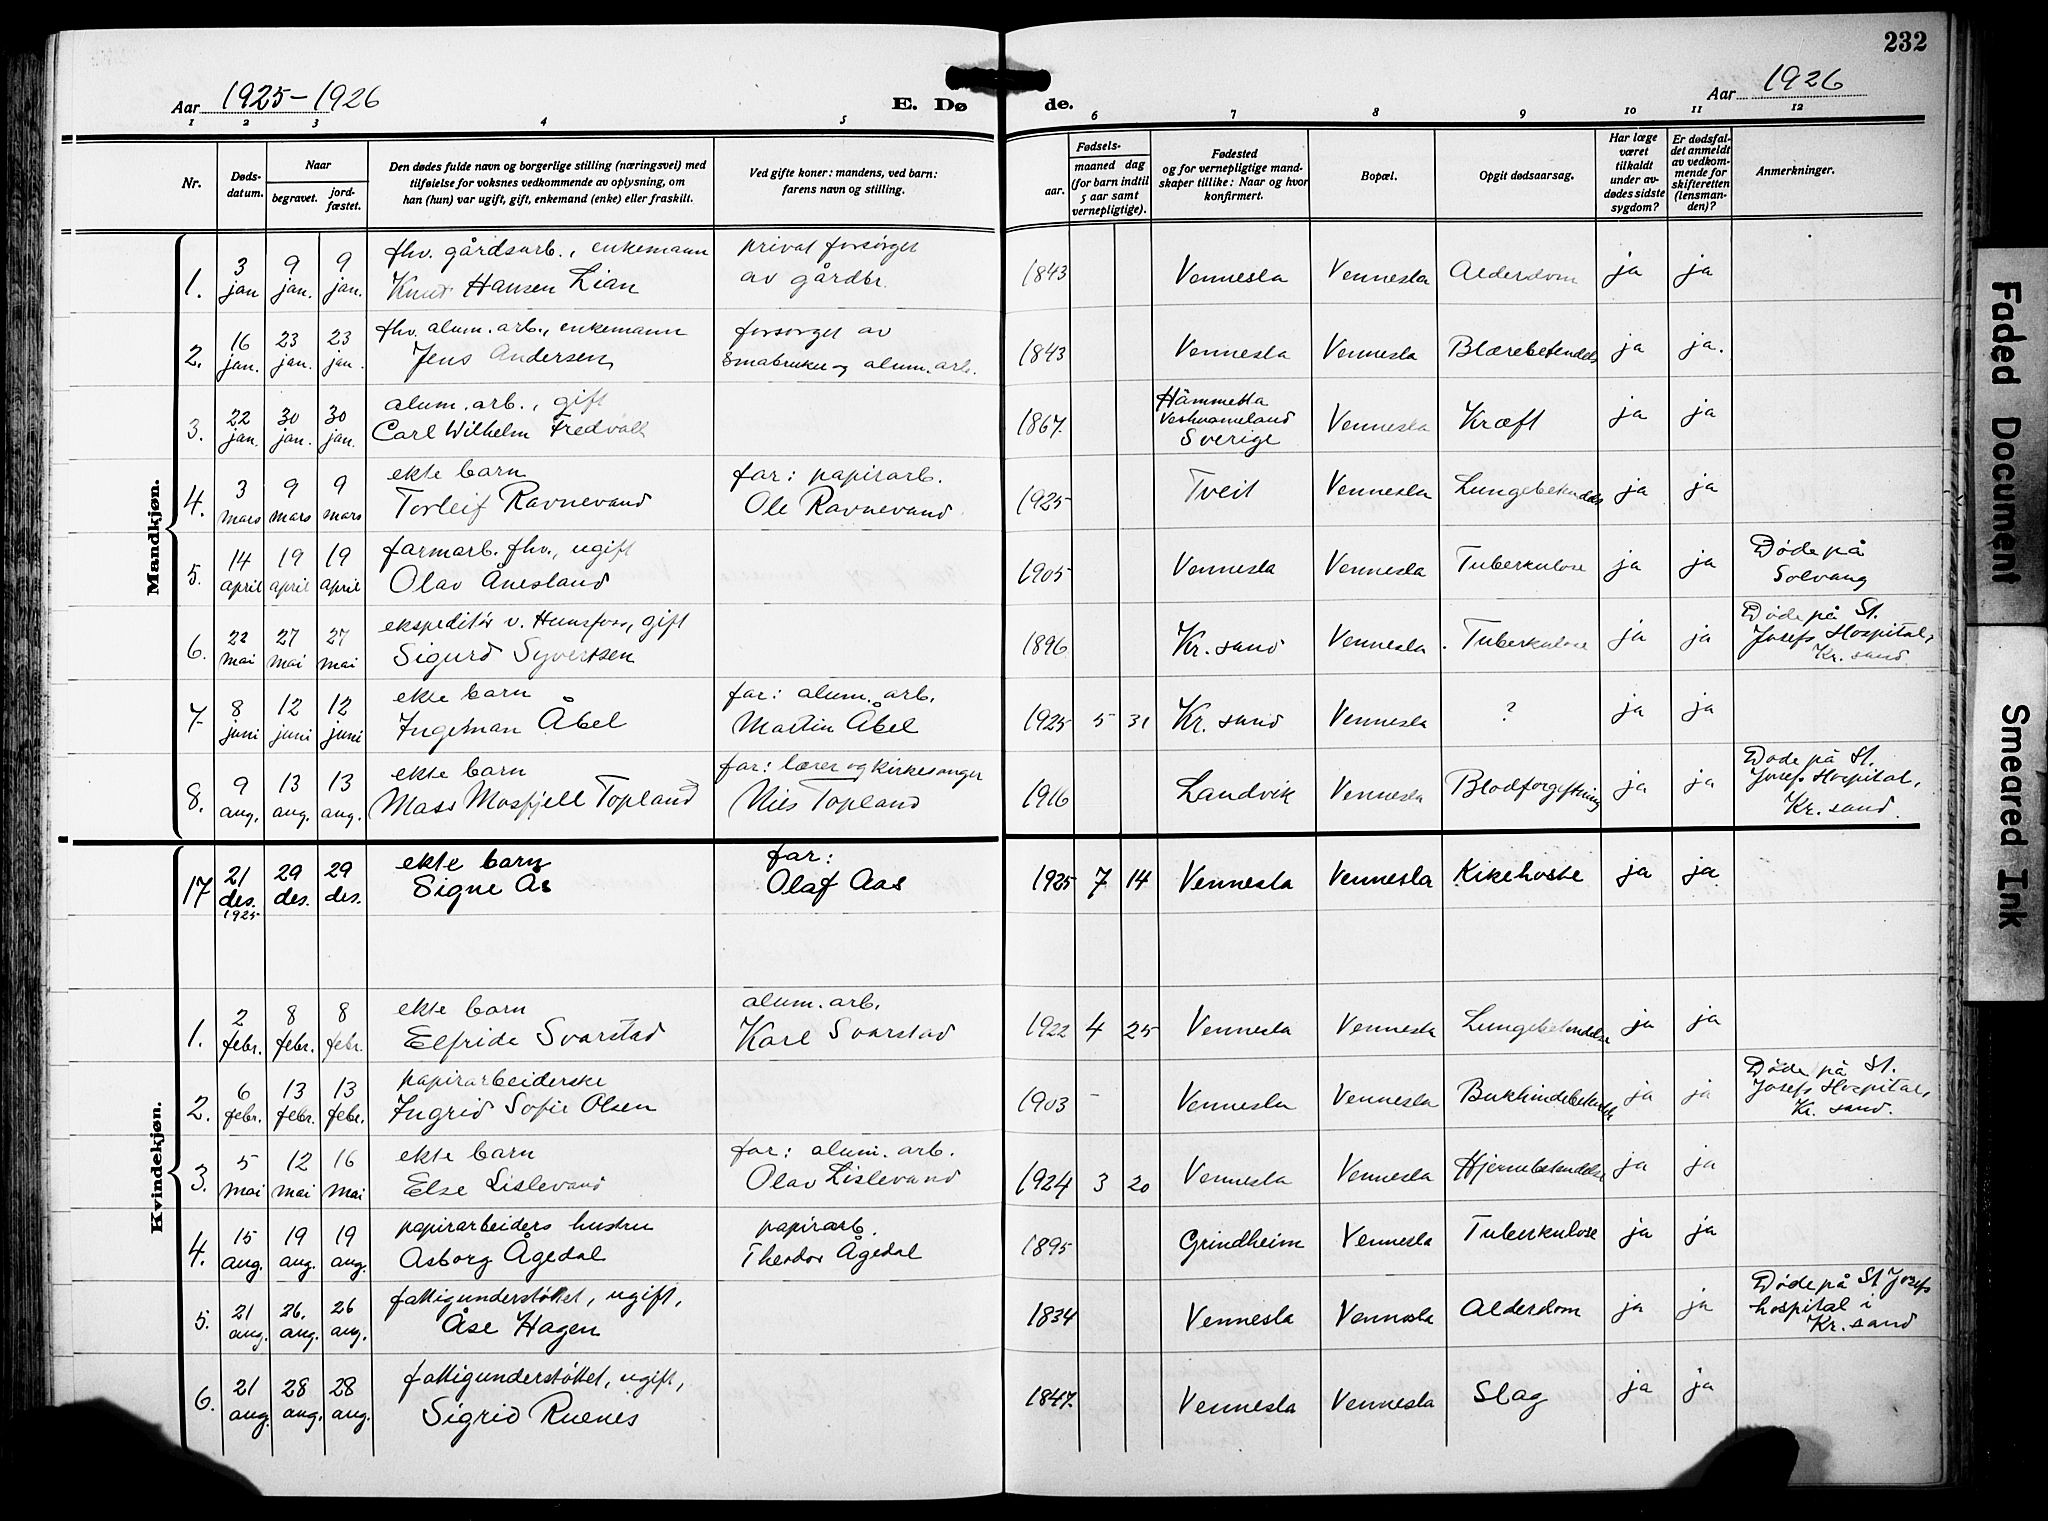 232
Aar 1925-1926
E. Dø
de.
Aar 1926
1 2 3 4 5 6 7 8 9 10 11 12
Nr.
Døds-
datum.
Naar
begravet.
jord-
fæstet.
Den dødes fulde navn og borgerlige stilling (næringsvei) med
tilføielse for voksnes vedkommende av oplysning, om
han (hun) var ugift, gift, enkemand (enke) eller fraskilt.
Ved gifte koner: mandens, ved barn:
farens navn og stilling.
Fødsels-
aar.
maaned dag
(for barn indtil
5 aar samt
vernepligtige).
Fødested
og for vernepligtige mand-
skaper tillike: Naar og hvor
konfirmert.
Bopæl.
Opgit dødsaarsag.
Har læge
været
tilkaldt
under av-
dødes sidste
sygdom?
Er dødsfal-
det anmeldt
av vedkom-
mende for
skifteretten
(lensman-
den)?
Anmerkninger.
Mandkjøn.
fhv. gårdsarb., enkemann privat forsørget
1. 3 jan 9 jan. 9 jan. Knut Hansen Lian av gårdbr. 1843 Vennesla Vennesla Alderdom ja ja
fhv. alum. arb., enkemann forsørget av
2. 16 jan. 23 jan. 23 jan. Jens Andersen Småbruker og alum. arb. 1843 Vennesla Vennesla Blærebetendels ja ja.
alum. arb., gift
3. 22 jan. 30 jan. 30 jan. Carl Wilhelm 1867. Sverige Vennesla Kræft ja ja
ekte barn far: papirarb.
4. 3 mars 9 mars 9 mars Torleif Ravnevand Ole Ravnevand 1925 Tveit Vennesla Lungebetendels ja ja
farmarb. fhv., ugift
5. 14 april 19 april 19 april Olav Ånesland 1905 Vennesla Vennesla Tuberkulose ja ja Døde på
Solvang
ekspeditør v. Hunsfoss, gift
6. 22 mai 27 mai 27 mai Sigurd Syvertsen 1896 Kr. sand Vennesla Tuberkulose ja ja Døde på St.
Josefs Hospital,
Kr. sand
ekte barn far: alum. arb.
7 8 juni 12 juni 12 juni Ingelman Åbel Martin Åbel 1925 5 31 Kr. sand Vennesla ? ja ja
ekte barn far: lærer og kirkesanger
8. 9 aug. 13 aug. 13 aug. Mass Mosfjell Topland Nils Topland 1916 Landvik Vennesla Blodforgiftning ja ja Døde på St.
Josefs Hospital,
Kr. sand.
Kvindekjøn.
ekte barn far:
17 21 des. 1925 29 des. 29 des. Signe Ås Olaf Aas 1925 7 14 Vennesla Vennesla Kikehoste ja ja
ekte barn alum. arb.
1. 2 febr. 8 febr. 8 febr. Elfride Svarstad Karl Svarstad 1922 4 25 Vennesla Vennesla Lungebetendelse ja ja
papirarbeiderske
2. 6 febr. 13 febr. 13 febr. Ingrid Sofie Olsen 1903 - Vennesla Vennesla Bukhindebetendels ja ja Døde på St.
Josefs Hospital,
Kr. sand.
ekte barn far: alum. arb.
3. 5 mai 12 mai 16 mai Else Lislevand Olav Lislevand 1924 3 20 Vennesla Vennesla Hjernebetendelse ja ja
papirarbeiders hustru papirarb.
4. 15 aug. 19 aug. 19 aug. Asborg Ågedal Theodor Ågedal 1895 Grindheim Vennesla Tuberkulose ja ja
fattigunderstøttet, ugift,
5. 21 aug. 26. aug. 26 aug. Åse Hagen 1834 Vennesla Vennesla Alderdom ja ja Døde på St Josefs
hospital i
Kr. sand
fattigunderstøttet, ugift,
6. 21 aug. 28 aug. 28 aug. Sigrid Ruenes 1847. Vennesla Vennesla Slag ja ja
Faded Document
Smeared Ink